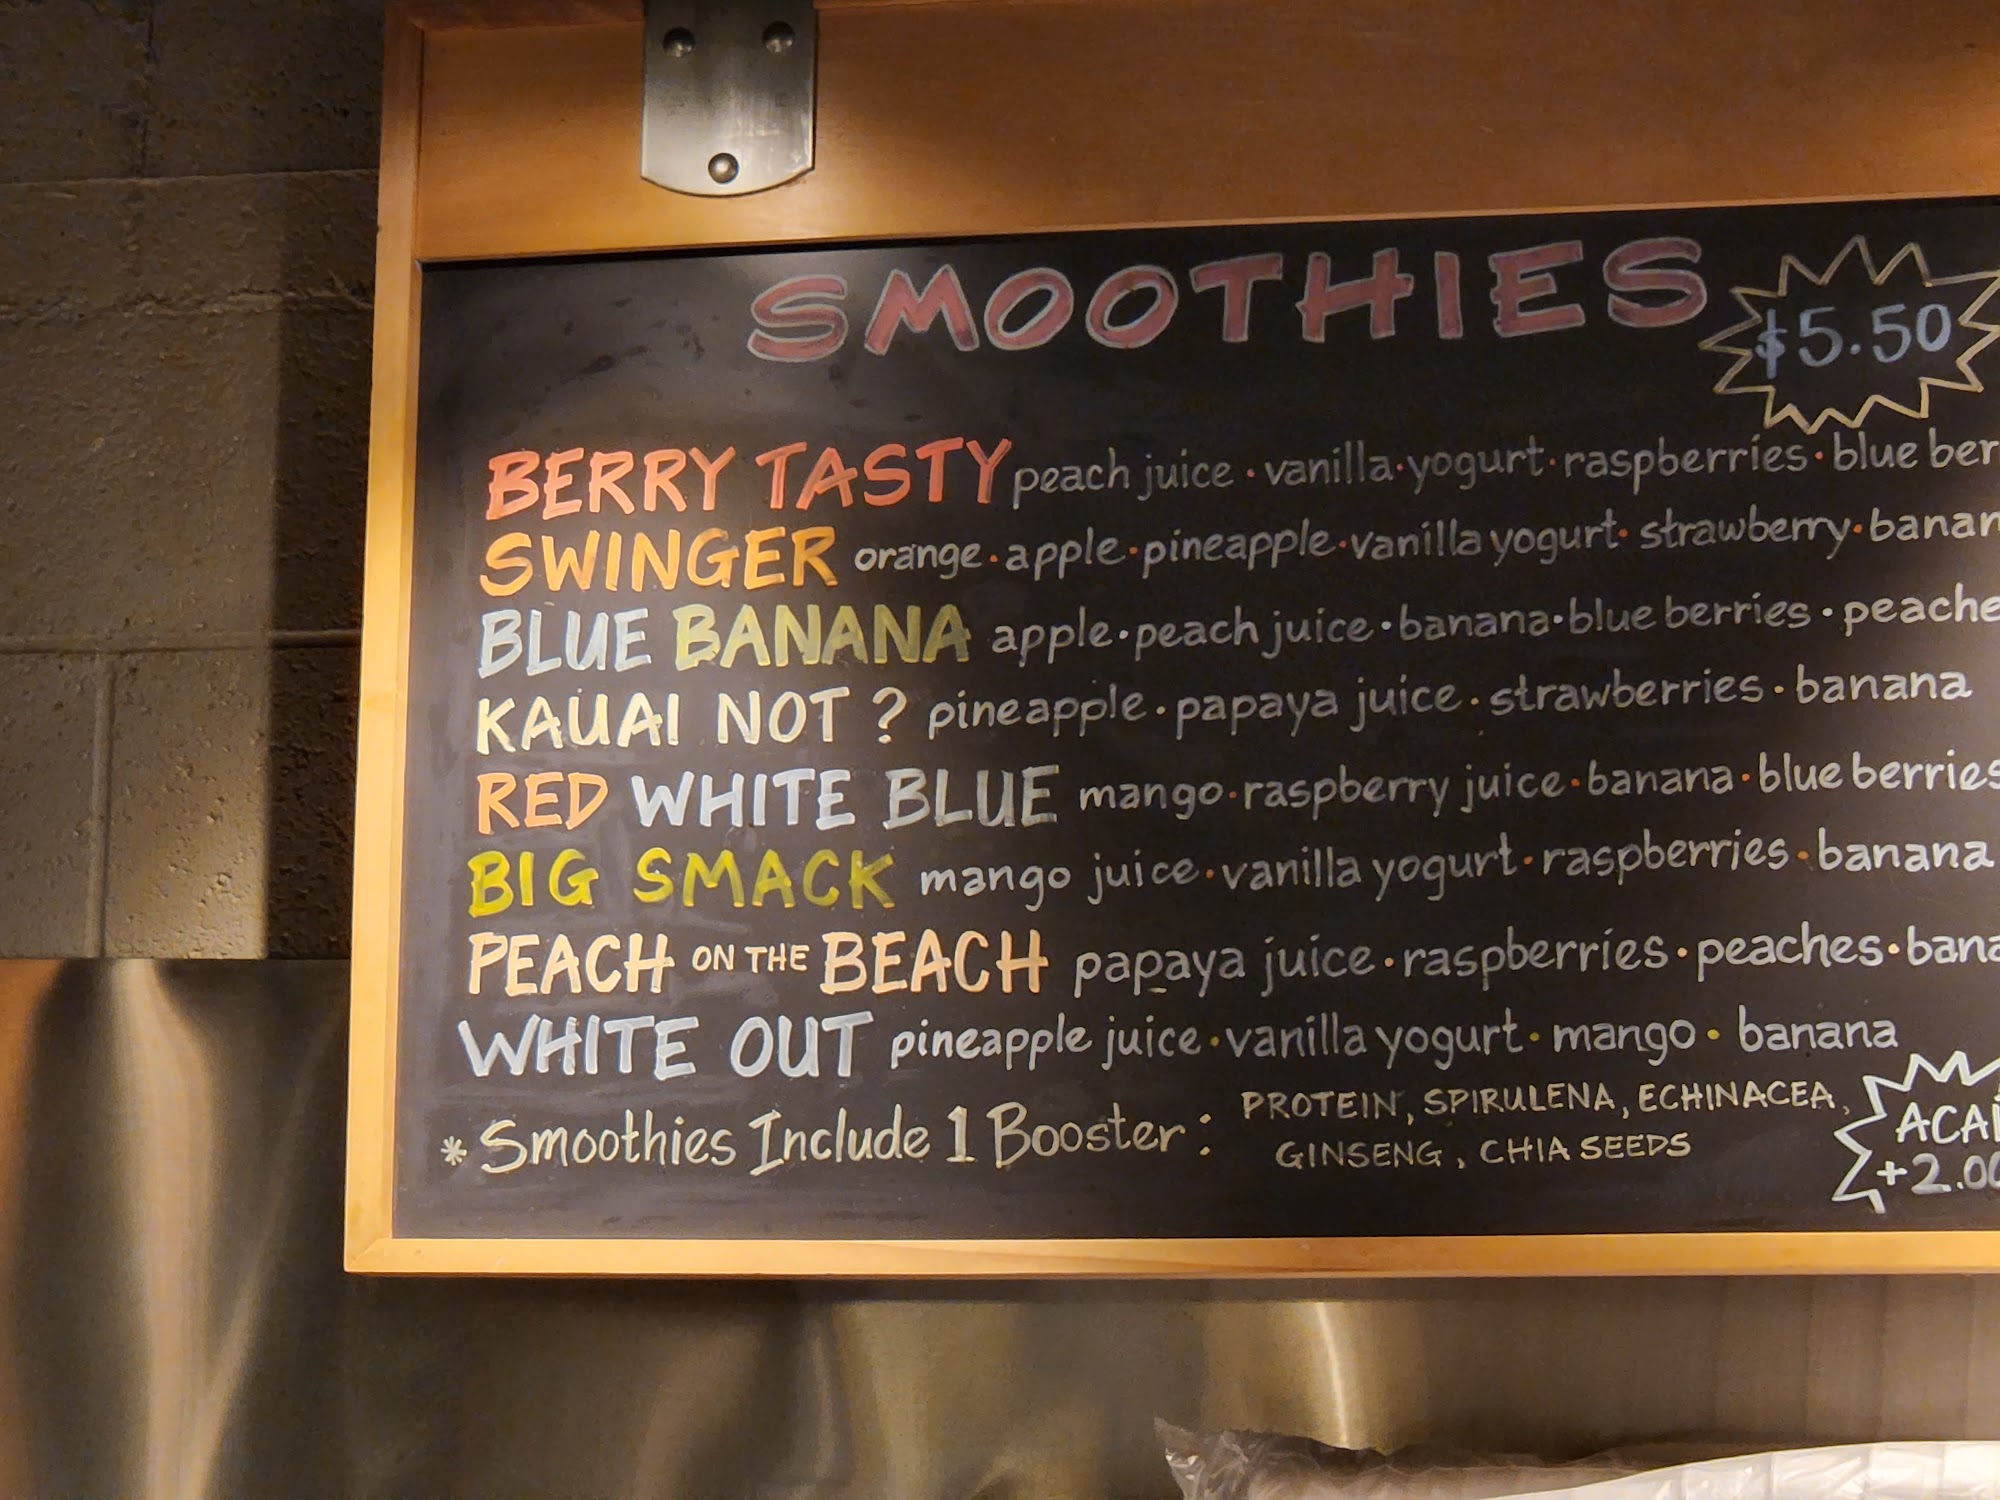 SMOOTHIES $5.50
BERRY TASTY peach juice · vanilla · yogurt · raspberries · blue ber
SWINGER orange · apple · pineapple · vanilla yogurt · strawberry · banan
BLUE BANANA apple · peach juice · banana · blue berries · peache
KAUAI NOT ? pineapple · papaya juice · strawberries · banana
RED WHITE BLUE mango · raspberry juice · banana · blue berries
BIG SMACK mango juice · vanilla yogurt · raspberries · banana
PEACH ON THE BEACH papaya juice · raspberries · peaches · bana
WHITE OUT pineapple juice · vanilla yogurt · mango · banana
* Smoothies Include 1 Booster : PROTEIN, SPIRULENA, ECHINACEA,
GINSENG, CHIA SEEDS
ACAI
+2.00